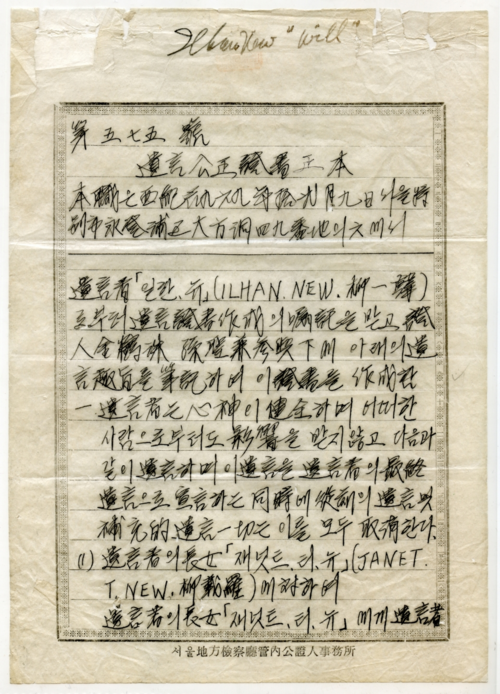 Ilhan New "Will"
第五七五 號
遺言公正證書正本
本職은 西紀 一九六九年 拾 月 九日 서울特
別市 永登浦區 大方洞 四九番地의 六에서
遺言者「일한.뉴」(ILHAN.NEW.柳一韓)
로부터 遺言證書作成의 囑託을 받고 證
人 金 參與下에 아래의 遺
言趣旨를 筆記하여 이 證書를 作成함
一 遺言者는 心神이 健全하며 어떠한
사람으로부터도 影響을 받지 않고 다음과
같이 遺言하며 이 遺言을 遺言者의 最終
遺言으로 宣言하는 同時에 從前의 遺言 및
補充的 遺言 一切는 이를 모두 取消한다.
(1) 遺言者의 長女「재넛트.티.뉴」(JANET.
T.NEW.柳載羅)에 對하여
遺言者의 長女「재넛트.티.뉴」에게 遺言者
서울地方檢察廳管內公證人事務所